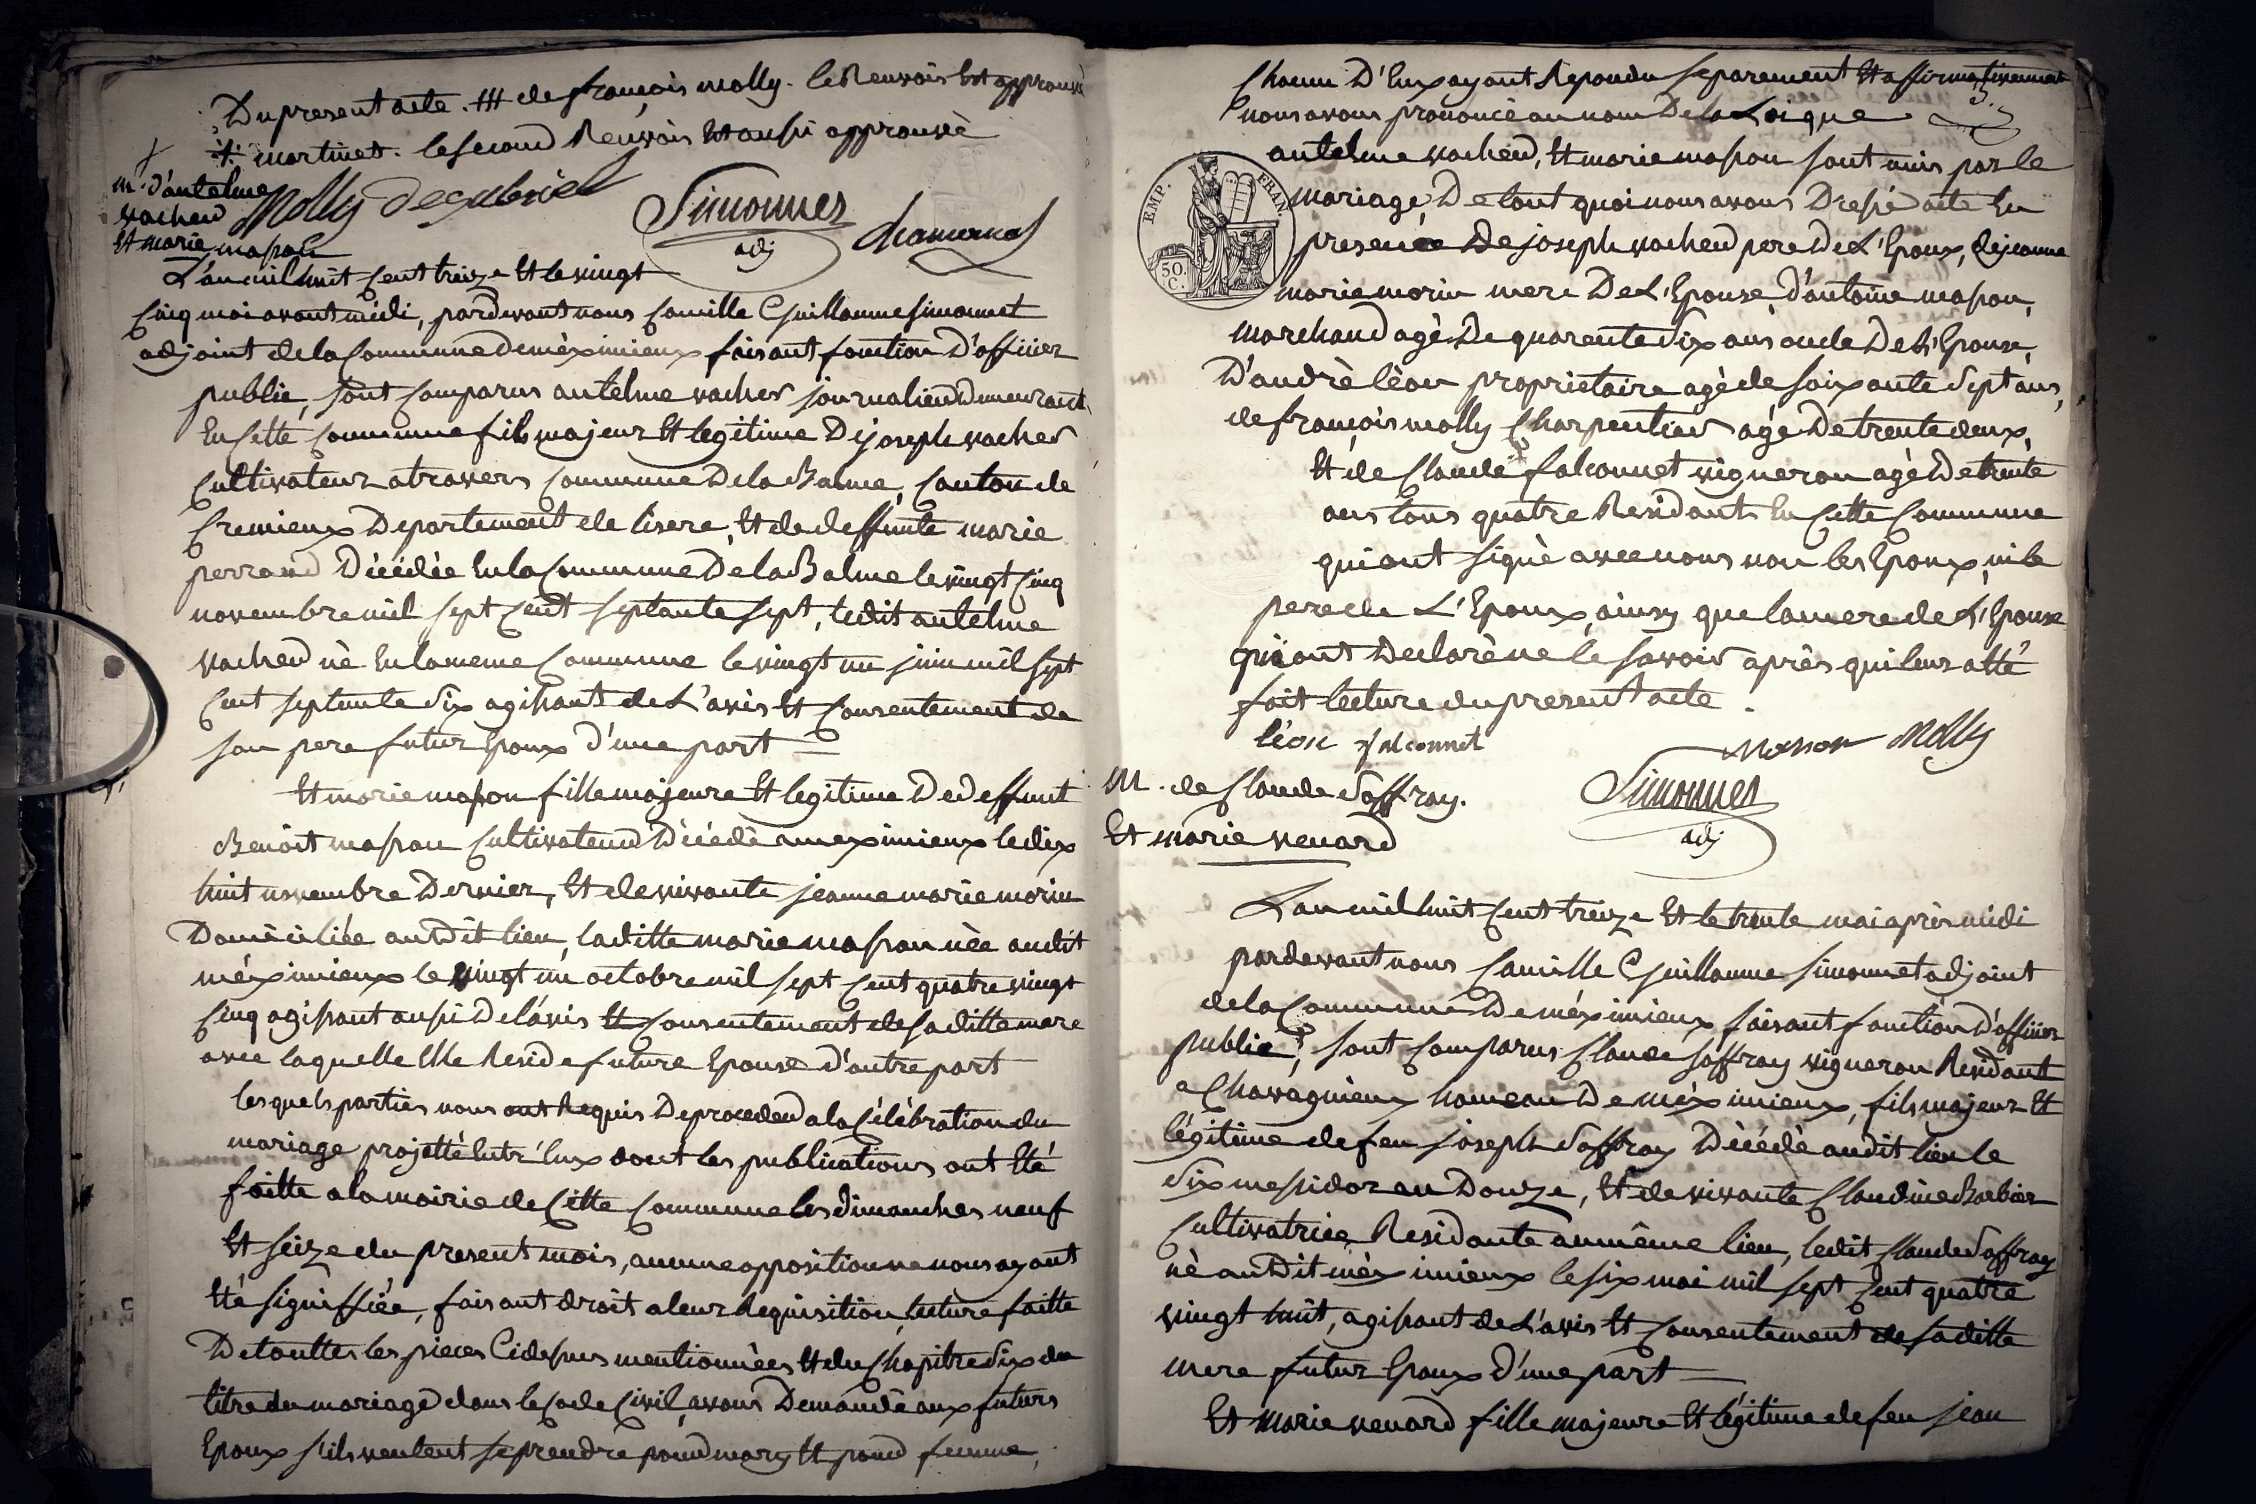 Du present acte. ttt de françois molly. le Renvois Est approuvé
martinet. le second Renvois Est aussi approuvé
Molly decgabriel
Simonnet
adj
m. d'antelme
vacher
Et marie masson
L'an mil huit cent treize Et le vingt
cinq mai avant midi, pardevant nous Camille Guillaume simonnet
adjoint de la Commune de méximieux faisant fonction D'officier
public, sont Comparus antelme vacher journalier Demeurant
En Cette commune fils majeur Et legitime De joseph vacher
Cultivateur a travers Commune De la Balme, Canton de
Cremieux Departement de lisere, Et de deffunte marie
perrand Décédée En la Commune De la Balme le vingt cinq
novembre mil sept cent septante sept, ledit antelme
vacher né En la meme Commune le vingt un juin mil sept
cent septente six agissant de L'avis Et Consentement de
son pere futur Epoux d'une part
Et marie masson fille majeure Et legitime De deffunt
Benoit masson Cultivateur Décédé a meximieux le dix
huit novembre Dernier, Et de vivante jeanne marie morin
Domiciliée audit lieu, laditte marie masson née audit
méximieux le vingt un octobre mil sept cent quatre vingt
cinq agissant aussi De l'avis Et Consentement de saditte mere
avec laquelle Elle Reside future Epouse d'autre part
les quels parties nous ont Requis De proceder a la Célébration du
mariage projetté Entr'Eux dont les publications ont Eté
faitte a la mairie de Cette Commune les dimanches neuf
Et seize du present mois, aucune opposition ne nous ayant
Eté signiffiée, faisant droit a leur Requisition, lecture faitte
De touttes les pieces Cidessus mentionnées Et du Chapitre six du
titre du mariage dans le Code Civil, avons Demandé aux futurs
Epoux s'ils veulent se prendre pour mary Et pour femme,
Chacun D'Eux ayant Repondu separement Et affirmativement
nous avons prononcé au nom De la Loi que
antelme vacher, Et marie masson sont unis par le
EMP. FRAN.
50. C.
mariage, De tout quoi nous avons Dressé acte En
presence De joseph vacher pere De L'Epoux, de jeanne
marie morin mere De L'Epouse, D'antoine masson,
marchand agé De quarente six ans oncle De L'Epouse,
D'andré léon proprietaire agé de soixante sept ans,
de françois molly Charpentier agé De trente deux,
Et de Claude falconnet vigneron agé De trente
ans tous quatre Residants En Cette Commune
qui ont signé avec nous non les Epoux, ni le
pere de L'Epoux, ainsy que la mere de L'Epouse
qui ont Declaré ne le savoir aprés qui leur a été
fait lecture du present acte.
léon falconnet
Masson Molly
Simonnet
adj
M. de Claude Saffray.
Et marie venard
L'an mil huit cent treize Et le trente mai aprés midi
pardevant nous Camille Guillaume simonnet adjoint
de la Commune De méximieux faisant fonction D'officier
public, sont Comparus Claude saffray vigneron Residant
a Chavagnieux hameau De méximieux, fils majeur Et
légitime de feu joseph Saffray Décédé audit lieu le
six messidor an Douze, Et de vivante Claudine Barbier
Cultivatrice Residante au même lieu, ledit Claude Saffray
né audit méximieux le six mai mil sept cent quatre
vingt huit, agissant de L'avis Et Consentement de saditte
mere futur Epoux d'une part
Et Marie venard fille majeure Et légitime de feu jean